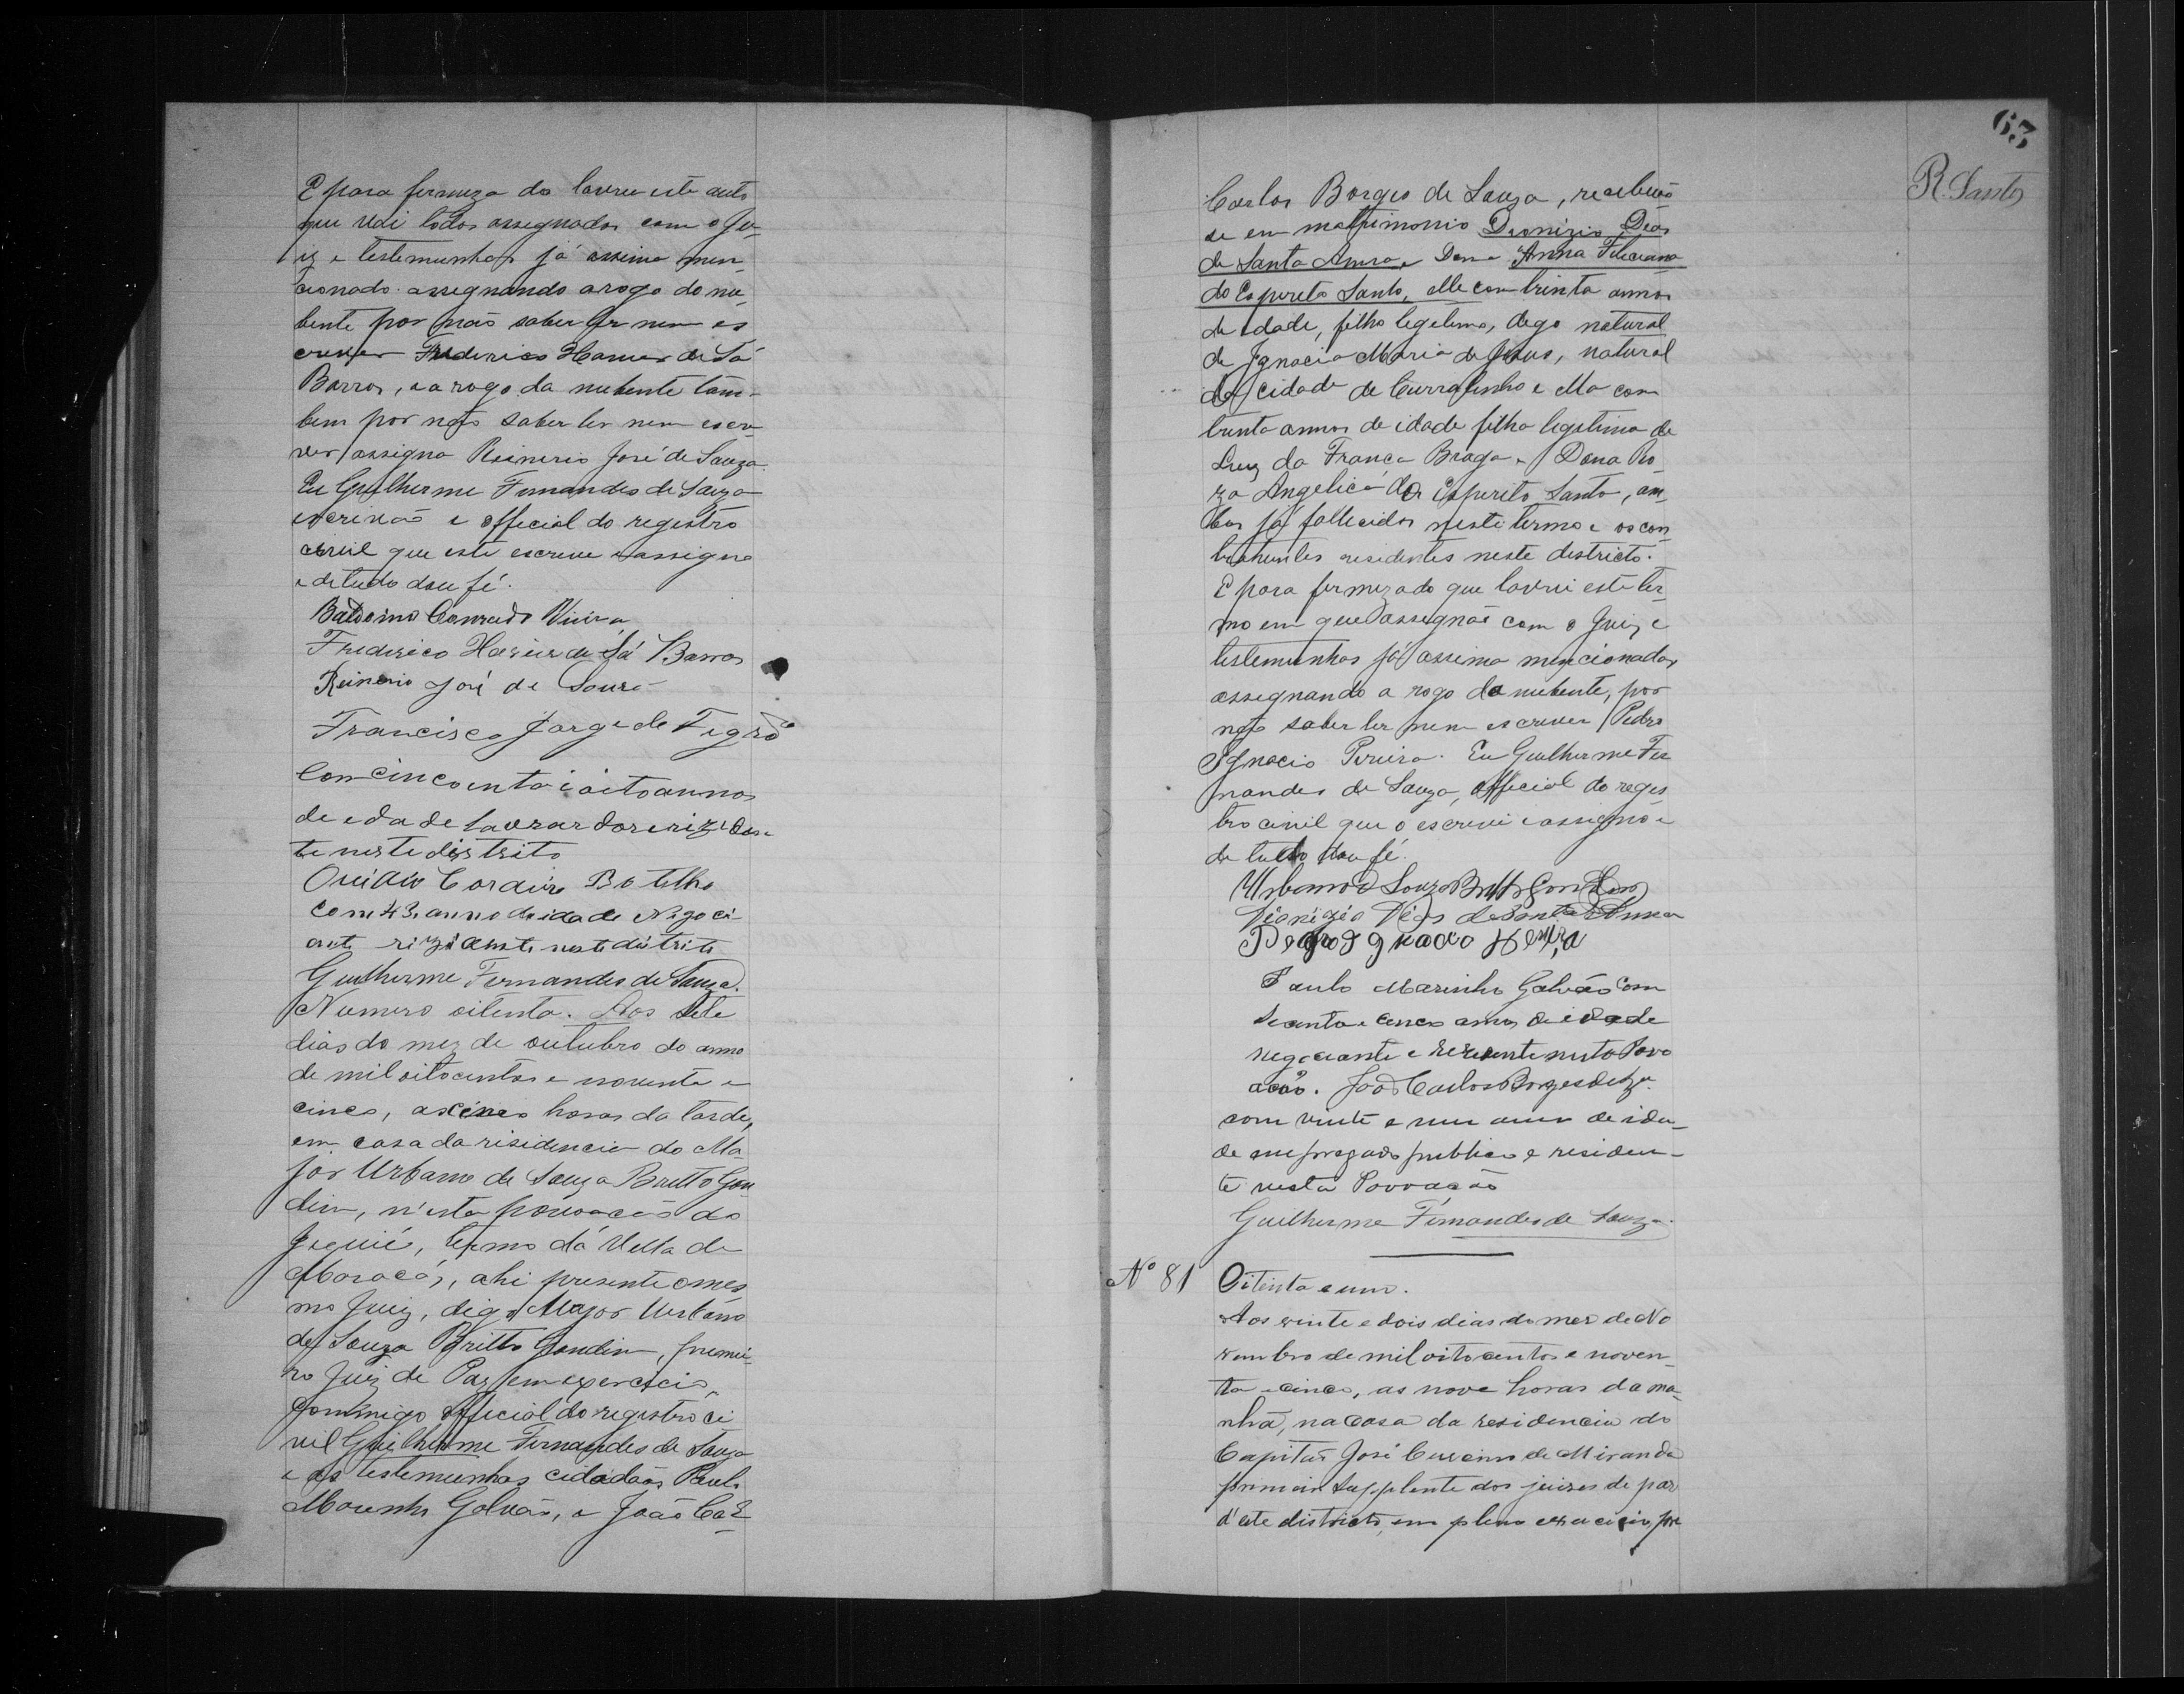 E para firmeza do lavrei este auto
que vai todos assegnados com o Ju-
iz e testemunhas já assima men-
cionado assegnando arogo do nu-
bente por não saber ler nem es
crever Frederico Havier de Sá
Barros, e a rogo da nubente tam-
bem por não saber ler nem escre-
ver assigna Reinerio José de Souza.
Eu Guilherme Fernandes de Souza
escrivão e official do registro
civil que este escreve e assigna
e de tudo dou fé.
Baldoino Conrado Vieira
Frederico Havier de Sá Barros
Reinerio José de Souza
Francisco Jorge de
Com cincoenta i oito annos
de edade Lavrador e rizide
te neste distrito
Ouidio Cordeiro Botelho
com 43 anno de idade Nigoci
ante rizidente neste distrito
Guilherme Fernandes de Souza.
Numero oitenta. Aos Sete
dias do mez de outubro do anno
de mil oitocentos e noventa e
cinco, as cinco horas da tarde,
em casa da risidencia do Ma-
jor Urbano de Souza Britto Gon
dim, n'esta povoação do
Jiquié, termo da Villa de
Maracás, ahi presente o mes
mo Juiz, digo Major Urbano
de Souza Britto Gondim, premei-
ro Juiz de Paz em exercicio,
Commigo official do registro ci
vil Guilherme Fernandes de Souza
e as testemunhas cidadãos Paulo
Marinho Galvão, e João Car
63
R. Santos
Carlos Borges de Souza, receberão
se em matrimonio Dionizio Dias
de Santa Anna e Dona Anna Feliciana
do Espirito Santo, elle com trinta annos
de idade, filho legitimo, digo natural
de Ignacia Maria de Jesus, natural
da cidade de Curralinho e Ella com
trinta annos de idade filha legitima de
Luiz da França Braga e Dona Ro
za Angelica do Esperito Santo, am
bos já fallecidos neste termo e os con
trahentes residentes neste destricto.
E para firmeza do que lavrei este ter
mo em que assegnão com o Juiz e
testemunhas já assima mencionadas
assegnando a rogo da nubente, por
não saber ler nem escrever Pedro
Ignacio Pereira. Eu Guilherme Fer
nandes de Souza, official do regis
tro civil que o escrevi e assigno e
de tudo dou fé.
Urbano de Souza Britto Gondim
Dionizio Dias de Santa Anna
Pedro Ignacio Pereira
Paulo Marinho Galvão com
secenta e cinco annos de idade
negociante e rezidente nesta Povo
ação. João Carlos Borges de Sza
com vinte e um anno de ida-
de empregado publico e residen-
te nesta Povoação
Guilherme Fernandes de Souza.
Nº 81
Oitenta e um.
Aos vinte e dois dias do mes de No
vembro de mil oitocentos e noven-
ta e cinco, as nove horas da ma-
nhã, na casa da residencia do
Capitão José Curcino de Miranda
primeiro supplente dos juizes de paz
d'este districto, em pleno exercicio, pre